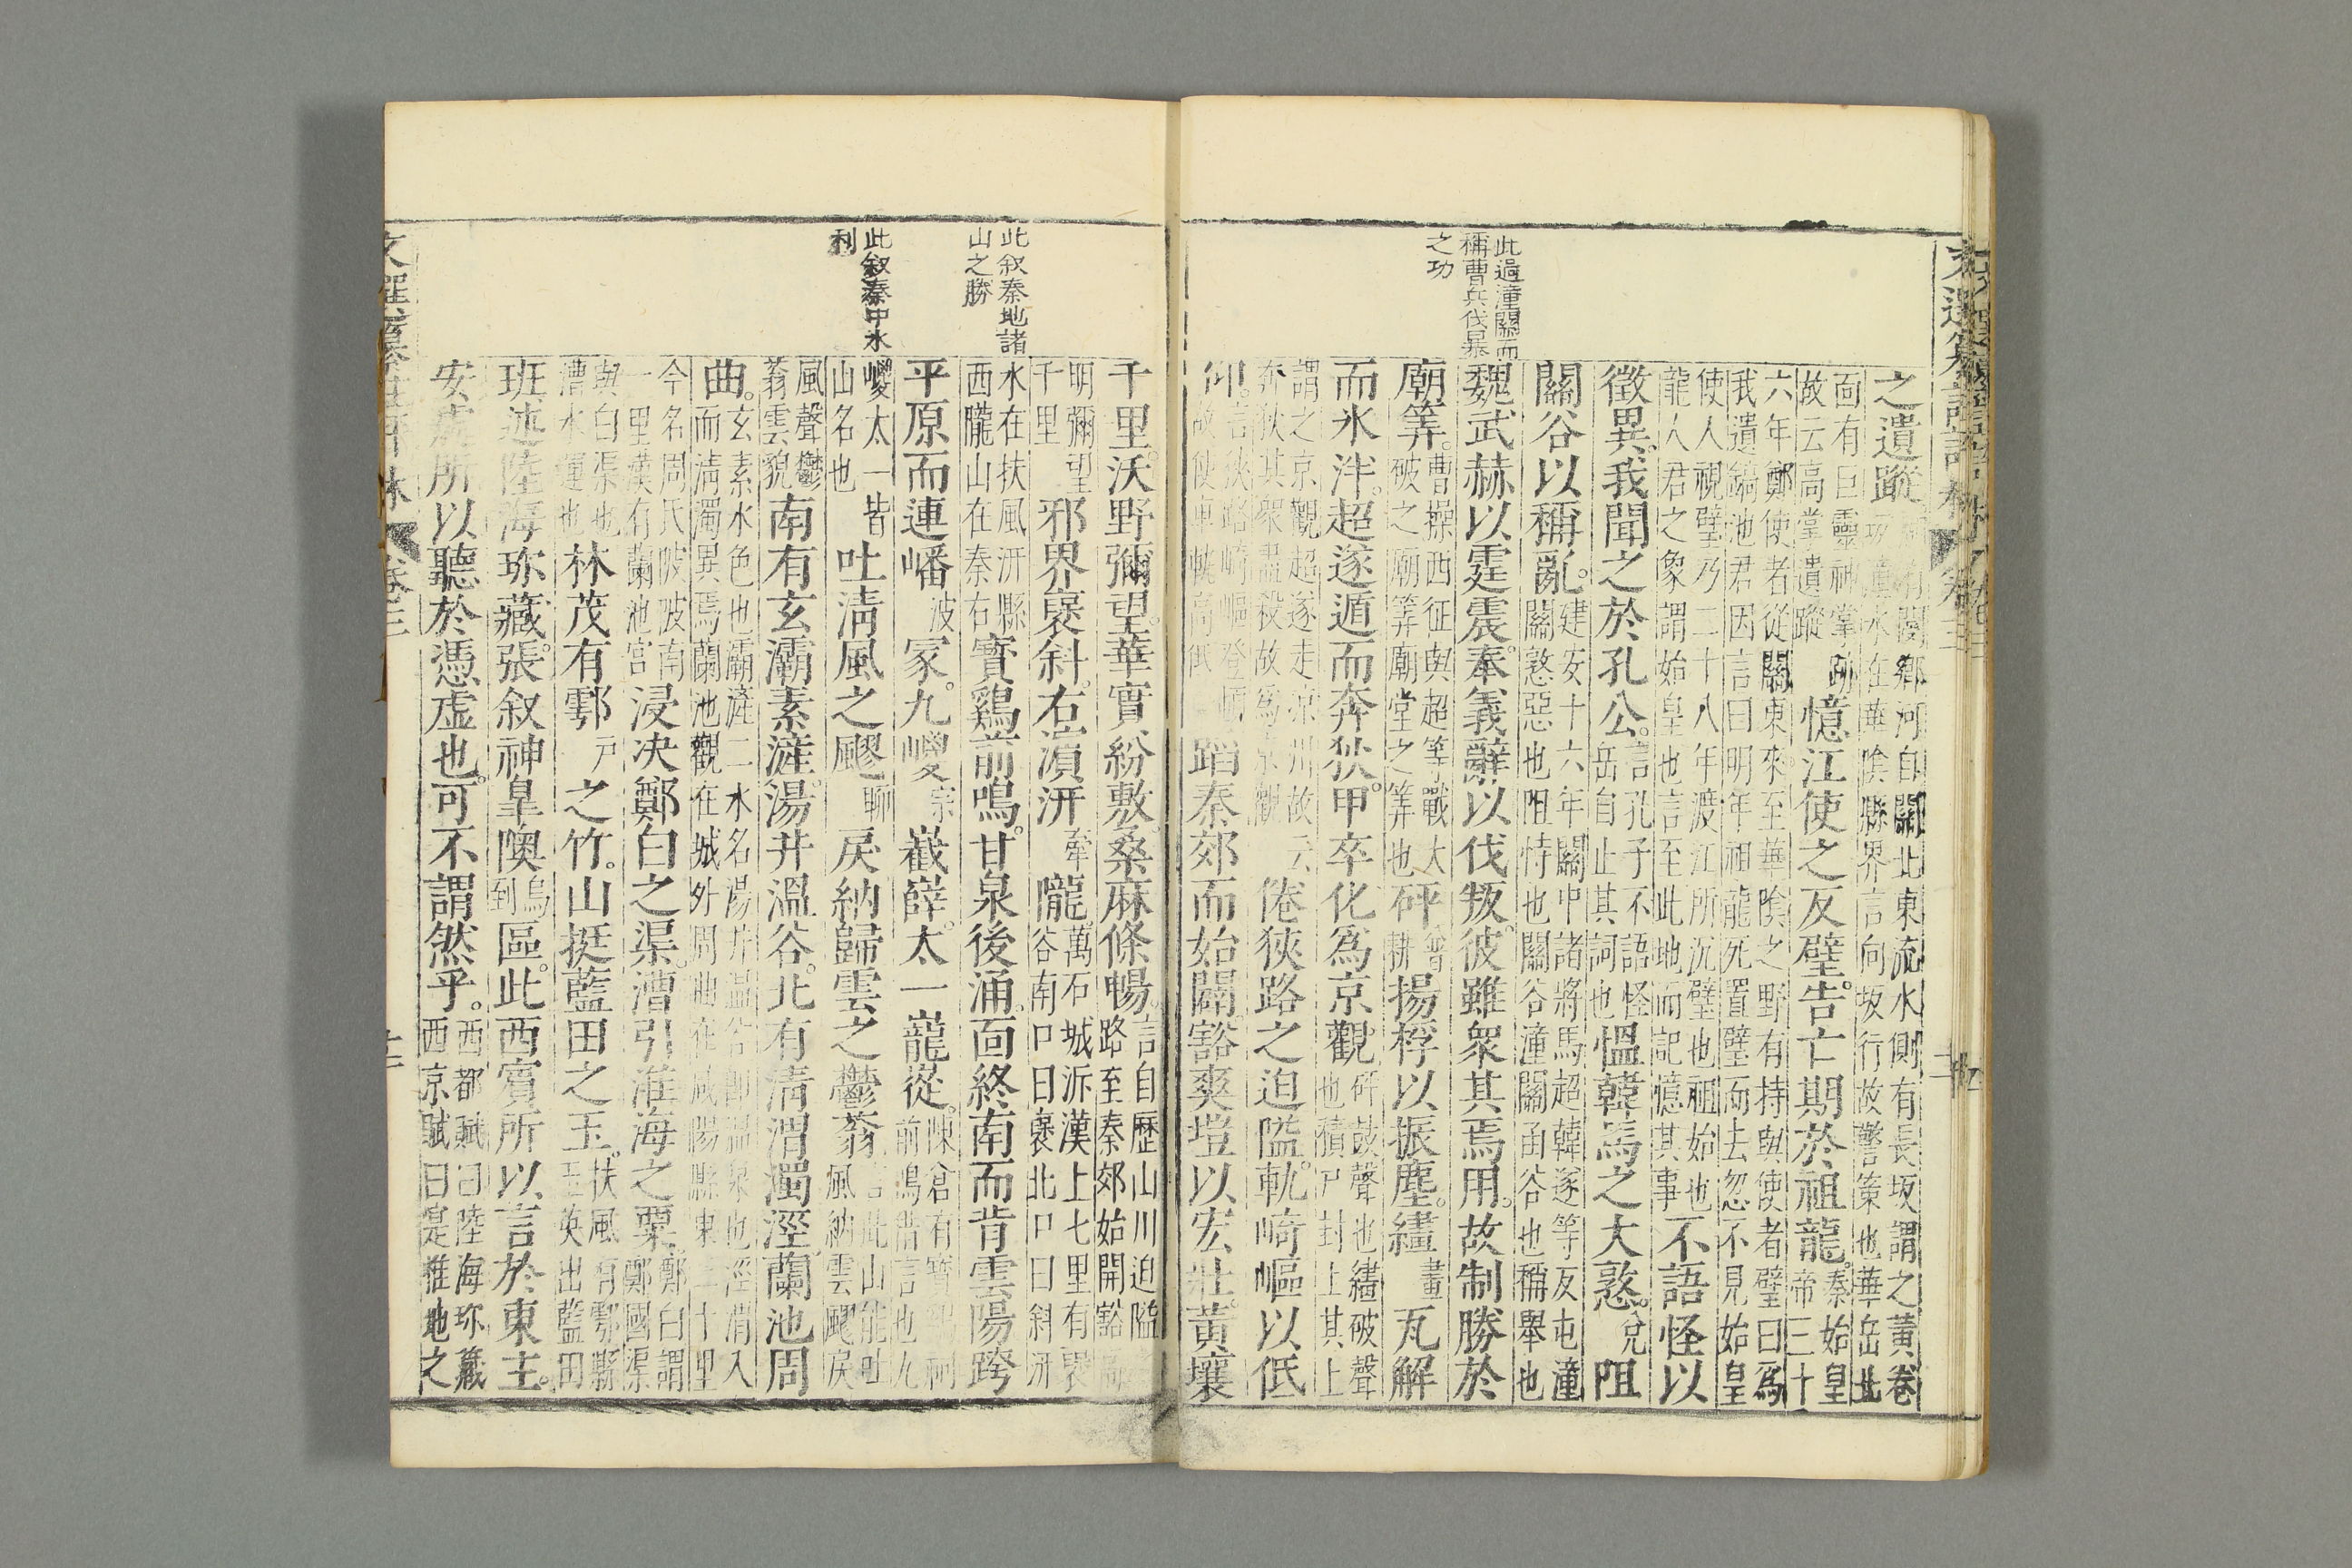 文選纂註評林 卷三
此過潼關而
稱曹兵伐暴
之功
之遺蹤
有閿鄉河自關北東流水側有長坂謂之黃卷
坂潼水在華陰縣界言向坂行故警策也華岳北
面有巨靈神掌跡
故云高堂遺蹤
憶江使之反璧。告亡期於祖龍。
秦始皇
帝三十
六年鄭使者從關東來至華陰之野有持與使者璧曰爲
我遺鎬池君因言曰明年祖龍死置璧而去忽不見始皇
使人視璧乃二十八年渡江所沉璧也祖始也
龍人君之象謂始皇也言至此地而記憶其事
不語怪以
徵異。我聞之於孔公。
言孔子不語怪
岳自止其詞也
慍韓馬之大憝。兌阻
關谷以稱亂。
建安十六年關中諸將馬超韓遂等反屯潼
關憝惡也阻恃也關谷潼關函谷也稱舉也
魏武赫以霆震。奉義辭以伐叛。彼雖衆其焉用。故制勝於
廟筭。
曹操西征與超等戰大
破之廟筭廟堂之筭也
砰普耕揚桴以振塵。繣畫瓦解
而氷泮。超遂遁而奔狄。甲卒化爲京觀
砰鼓聲也繣破聲
也積尸封土其上
謂之京觀超遂走凉州故云
奔狄其衆盡殺故爲京觀
倦狹路之迫隘。軌崎嶇以低
仰。
言狹路崎嶇登頓
故使車軌高低
蹈秦郊而始闢。豁爽塏以宏壯。黃壤
此叙秦地諸
山之勝
此叙秦中水
利
千里。沃野彌望。華實紛敷。桑麻條暢。
言自歷山川迫隘
路至秦郊始開豁
明彌望
千里
邪界褒斜。右濱汧牽隴。
萬石城泝漢上七里有褒
谷南口曰褒北口曰斜汧
水在扶風汧縣
西隴山在秦右
寶鷄前鳴。甘泉後涌。面終南而背雲陽。跨
平原而連嶓波冢。九嵕宗嶻嶭。太一巃嵸。
陳倉有寶鷄祠
前鳴猶言也九
嵕太一皆
山名也
吐清風之飂聊戾。納歸雲之鬱蓊。
言此山能吐
風納雲飂戾
風聲鬱
蓊雲貌
南有玄灞素滻。湯井溫谷。北有清渭濁涇。蘭池周
曲。
玄素水色也灞滻二水名湯井溫谷卽溫泉也涇渭入
而清濁異焉蘭池觀在城外周曲在咸陽縣東三十里
今名周氏陂陂南
一里漢有蘭池宮
浸決鄭白之渠。漕引淮海之粟。
鄭白謂
鄭國渠
與白渠也
漕水運也
林茂有鄠戸之竹。山挺藍田之玉。
扶風有鄠縣
玉英出藍田
班述陸海珍藏。張叙神皐隩烏到區。此西賓所以言於東主。
安處所以聽於憑虛也。可不謂然乎。
西都賦曰陸海珍藏
西京賦曰寔惟地之
文選纂註評林 卷三